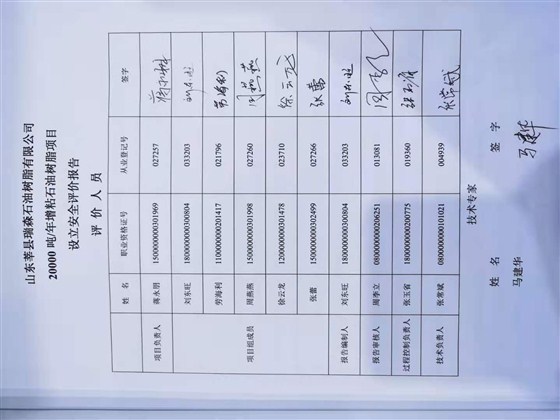 山东莘县瑞森石油树脂有限公司
20000 吨/年增粘石油树脂项目
设立安全评价报告
评 价 人 员
姓 名 职业资格证号 从业登记号 签字
项目负责人 蒋永朋 1500000000301969 027257
项目组成员 刘东旺 1800000000300804 033203 刘东旺
劳海利 1100000000201417 021796 劳海利
周燕燕 1500000000301998 027260 周燕燕
徐云龙 1200000000301478 023710 徐云龙
张蕾 1500000000302499 027266 张蕾
报告编制人 刘东旺 1800000000300804 033203 刘东旺
报告审核人 周季立 0800000000206251 013081
过程控制负责人 张玉省 1800000000200775 019360
技术负责人 张常斌 0800000000101021 004939 张常斌
技术专家
姓 名 签 字
马建华 马建华